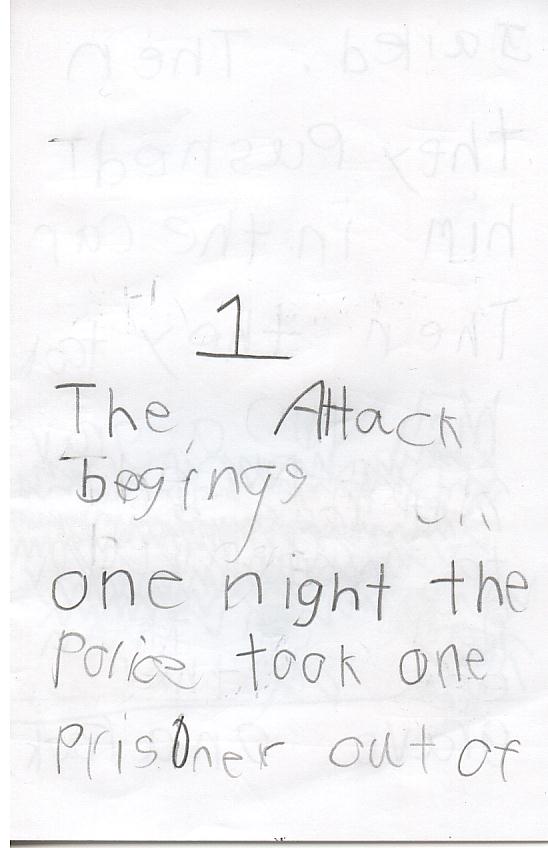 1
The Attack
begings
one night the
Police took one
prisoner out of